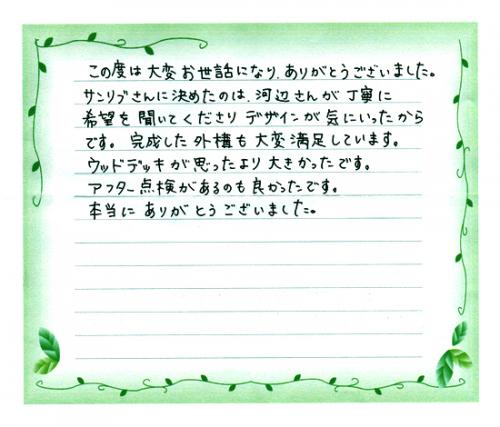 この度は大変お世話になり、ありがとうございました。
サンリブさんに決めたのは、河辺さんが丁寧に
希望を聞いてくださりデザインが気にいったから
です。完成した外構も大変満足しています。
ウッドデッキが思ったより大きかったです。
アフター点検があるのも良かったです。
本当にありがとうございました。